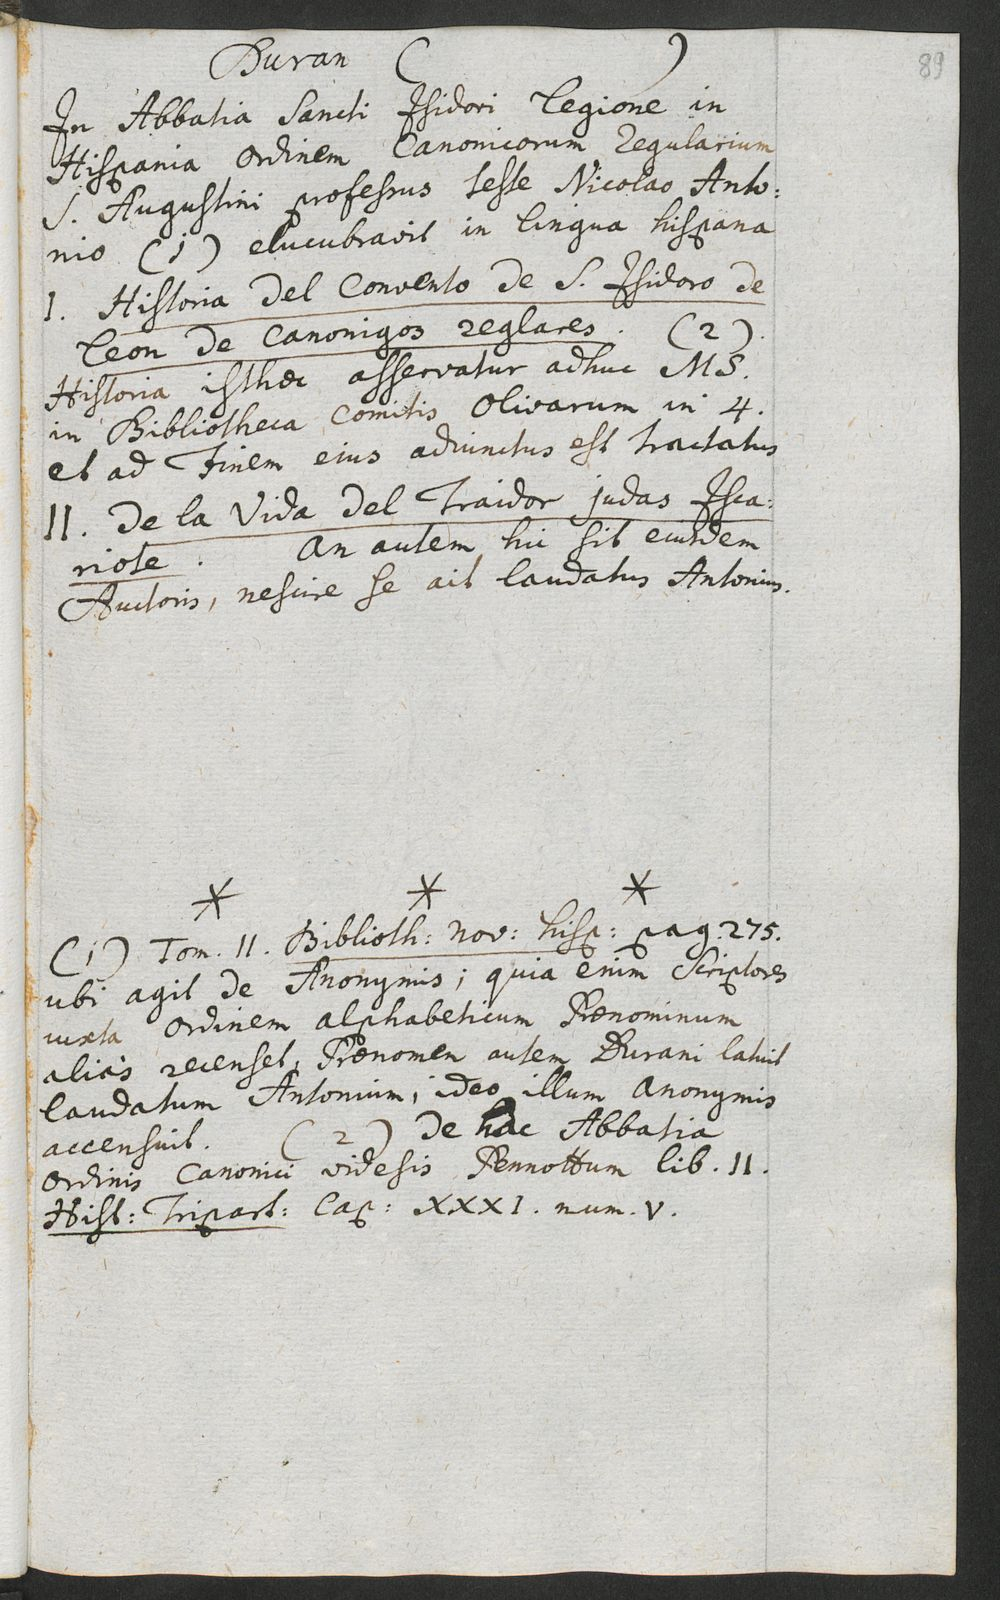 89
Duran ( )
In Abbatia Sancti Isidori Legione in
Hispania ordinem Canonicorum Regularium
S. Augustini professus teste Nicolao Anto:
nio (1) elucubravit in lingua hispana
I. Historia del Convento de S. Isidoro de
Leon de Canonigos reglares. (2).
Historia isthæc asservatur adhuc MS.
in Bibliotheca Comitis Olivarum in 4.
et ad Finem eius adiunctus est tractatus
II. De la Vida del Traidor judas Isca:
riote. An autem hic sit eiusdem
Auctoris, nescire se ait laudatus Antonius.
* * *
(1) Tom. II. Biblioth: nov: hisp: pag. 275.
ubi agit de Anonymis; quia enim Scriptores
iuxta ordinem alphabeticum Prænominum
alias recenset, Prænomen autem Durani latuit
laudatum Antonium; ideo illum Anonymis
accensuit. (2) De hac Abbatia
ordinis Canonici videsis Pennottum lib. II.
Hist: Tripart: Cap: XXXI. num. V.